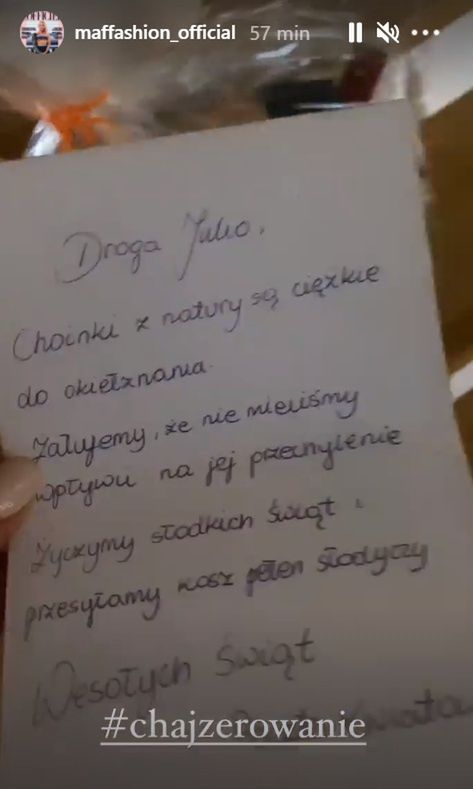 maffashion_official 57 min
Droga Julio,
Choinki z natury są ciężkie
do okiełznania.
Żałujemy, że nie mieliśmy
wpływu na jej przechylenie
Życzymy słodkich świąt i
przesyłamy kosz pełen słodyczy
Wesołych Świąt
#chajzerowanie